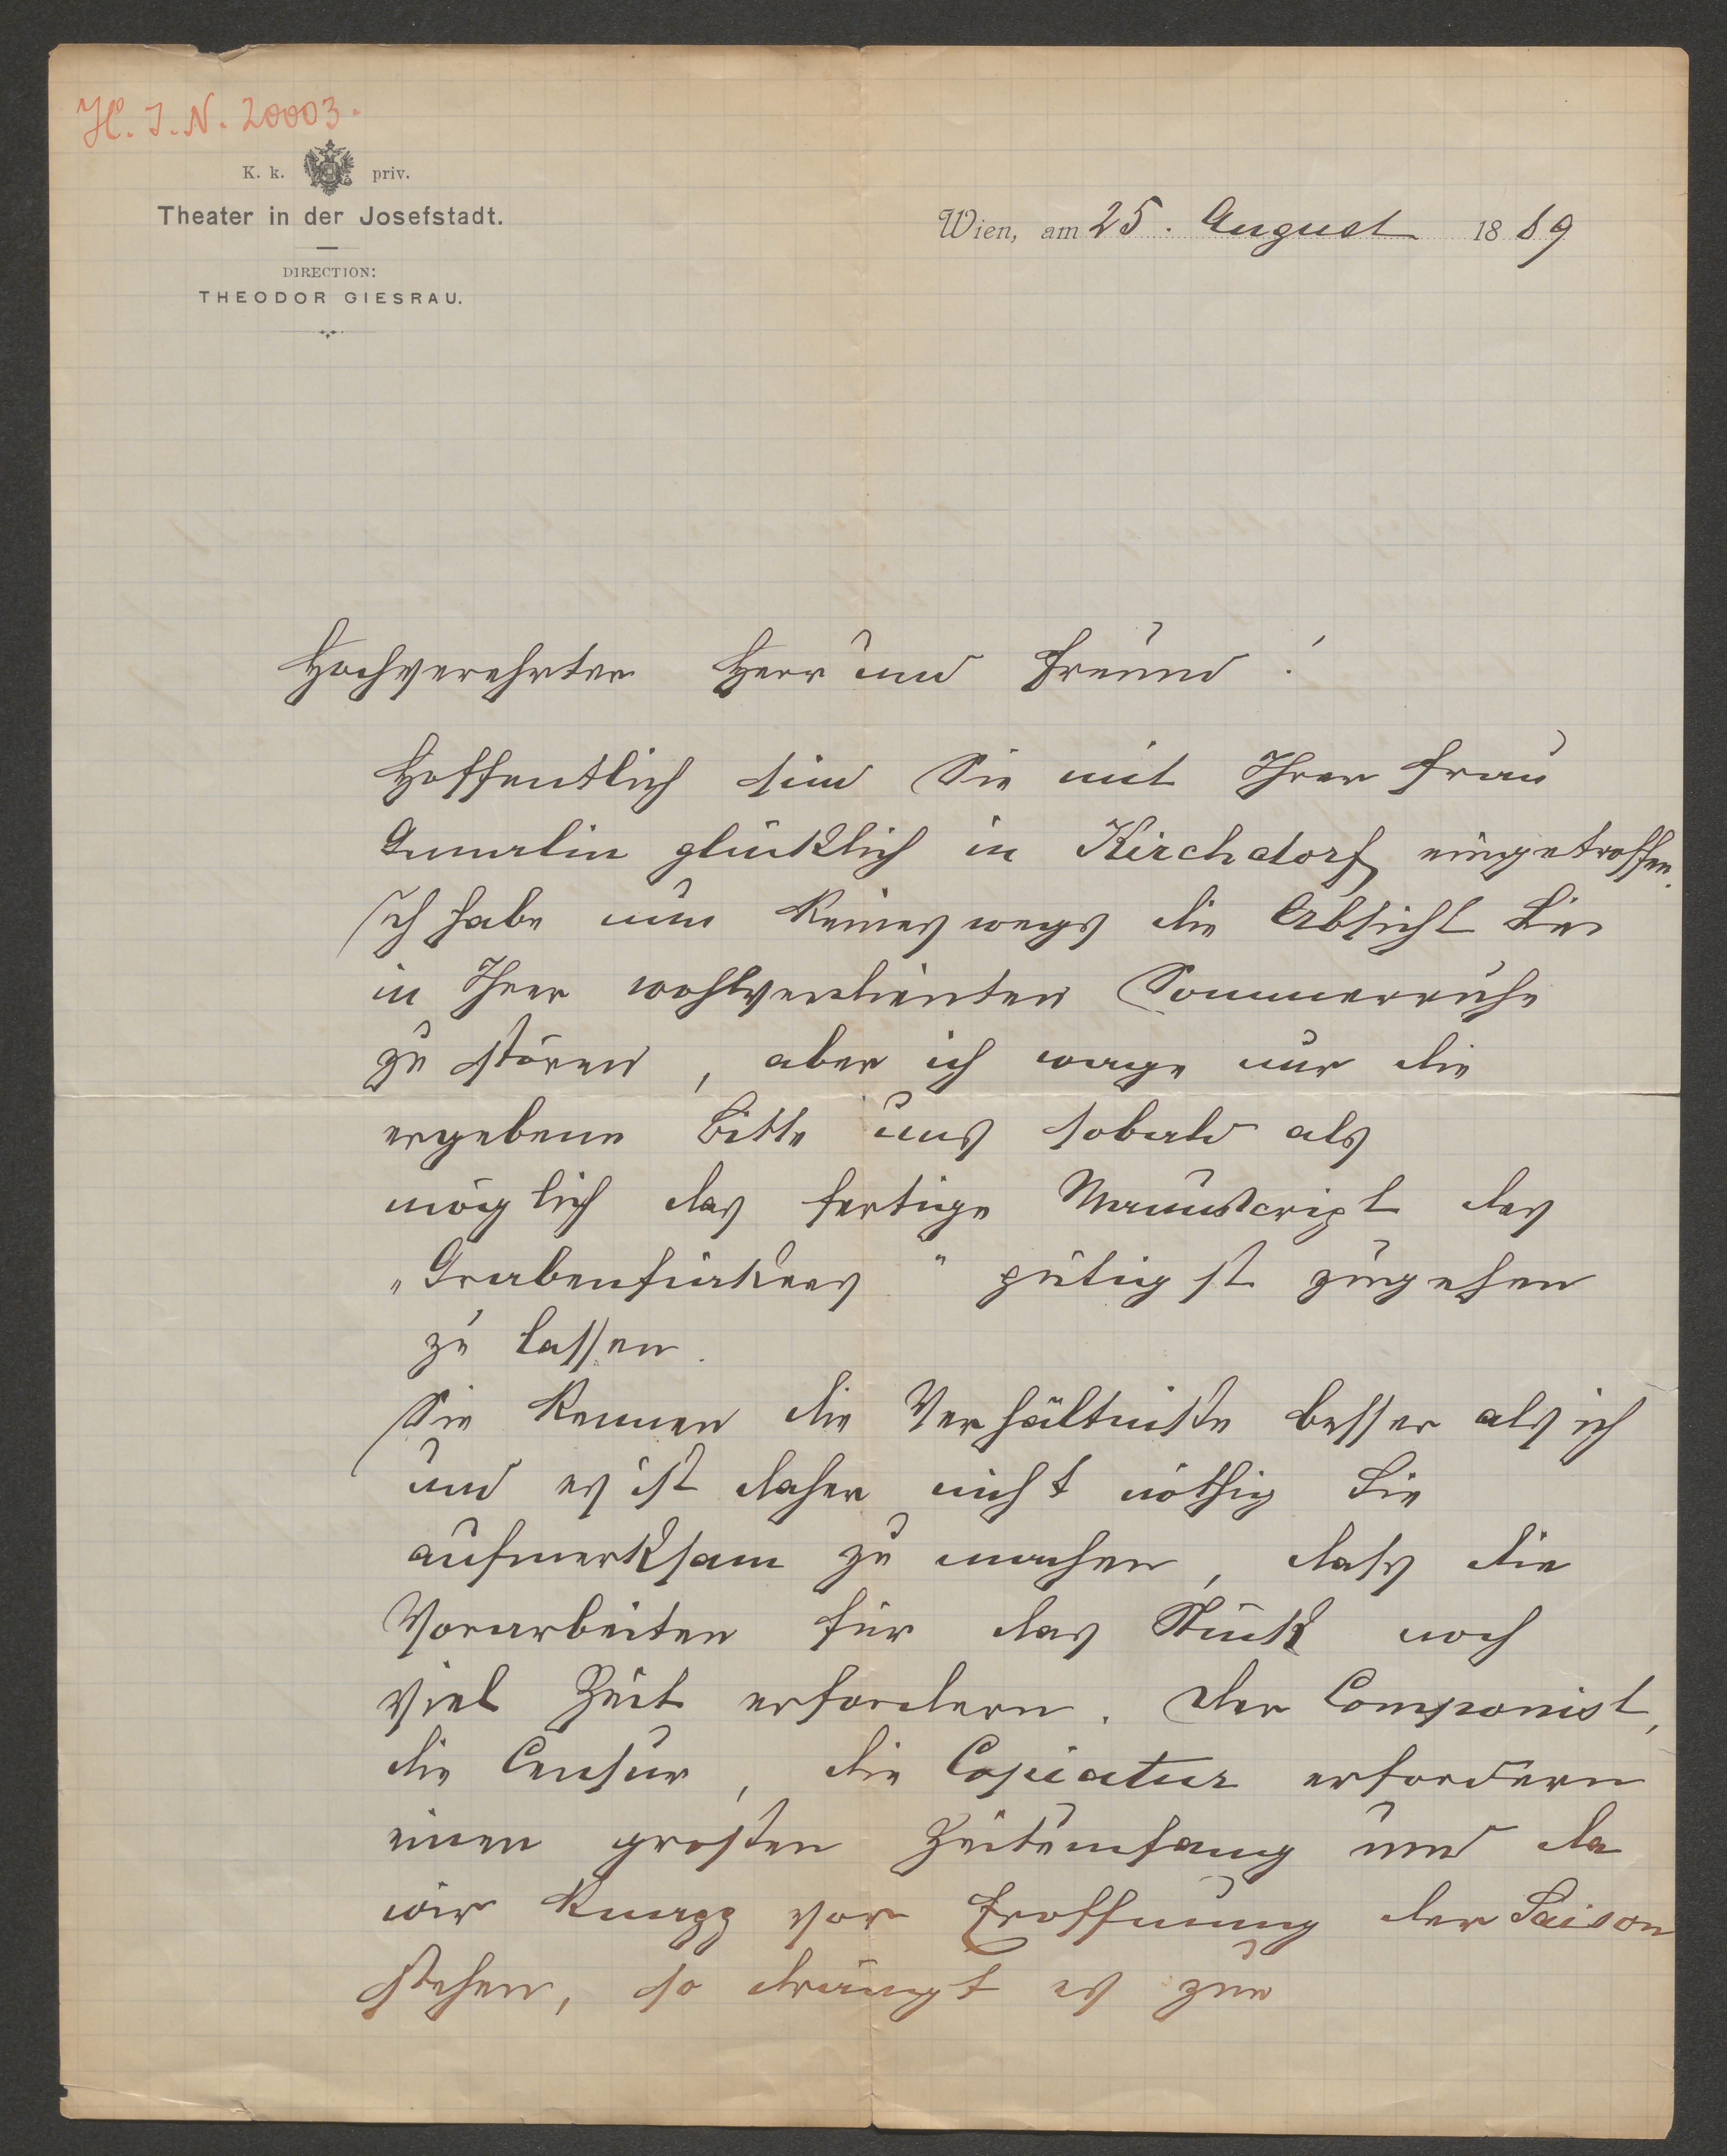 H. I. N. 20003.
K. k. priv.
Theater in der Josefstadt.
DIRECTION:
THEODOR GIESRAU.
Wien, am 25. August 1889
Hochverehrter Herr und Freund!
Hoffentlich sind Sie mit Ihrer Frau
Gemalin glücklich in Kirchdorf eingetroffen.
Ich habe nun keineswegs die Absicht Sie
in Ihrer wohlverdienten Sommerruhe
zu stören, aber ich wage nur die
ergebene Bitte uns sobald als
möglich das fertige Manuscript des
„Grabenfiakers" gütigst zugehen
zu lassen.
Sie kennen die Verhältniße besser als ich
und es ist daher nicht nöthig Sie
aufmerksam zu machen, dass die
Vorarbeiten für das Stück noch
viel Zeit erfordern. Der Componist,
die Censur, die Copiatur erfordern
einen großen Zeitumfang und da
wir knapp vor Eröffnung der Saison
stehen, so drängt es zur